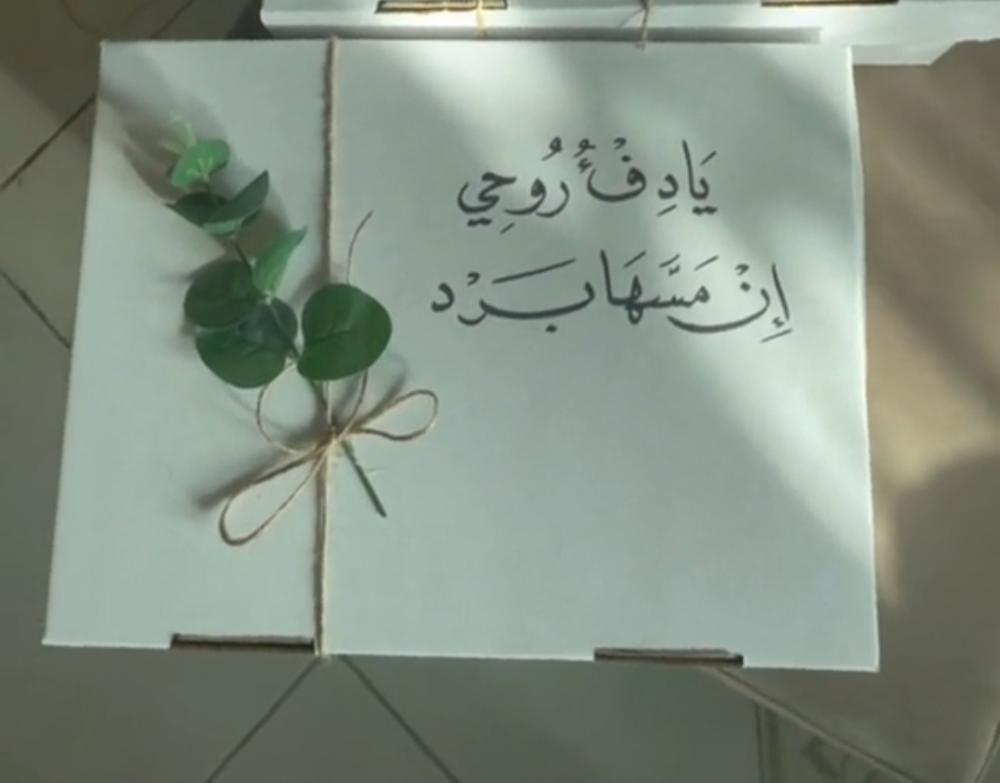 يَا دِفْءُ رُوحِي
إِنْ مَسَّهَا بَرْد